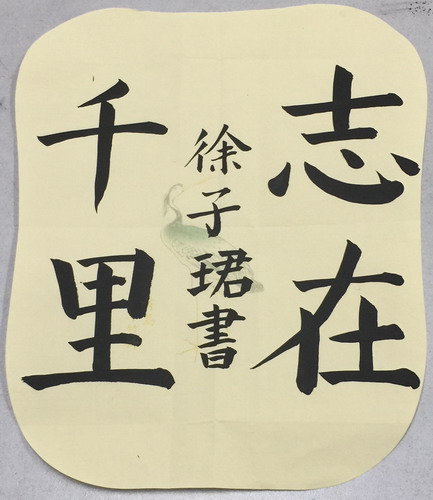 志在
千里
徐子珺書